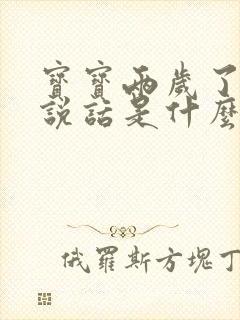 寶寶兩歲了
說話是什麼
俄羅斯方塊丁